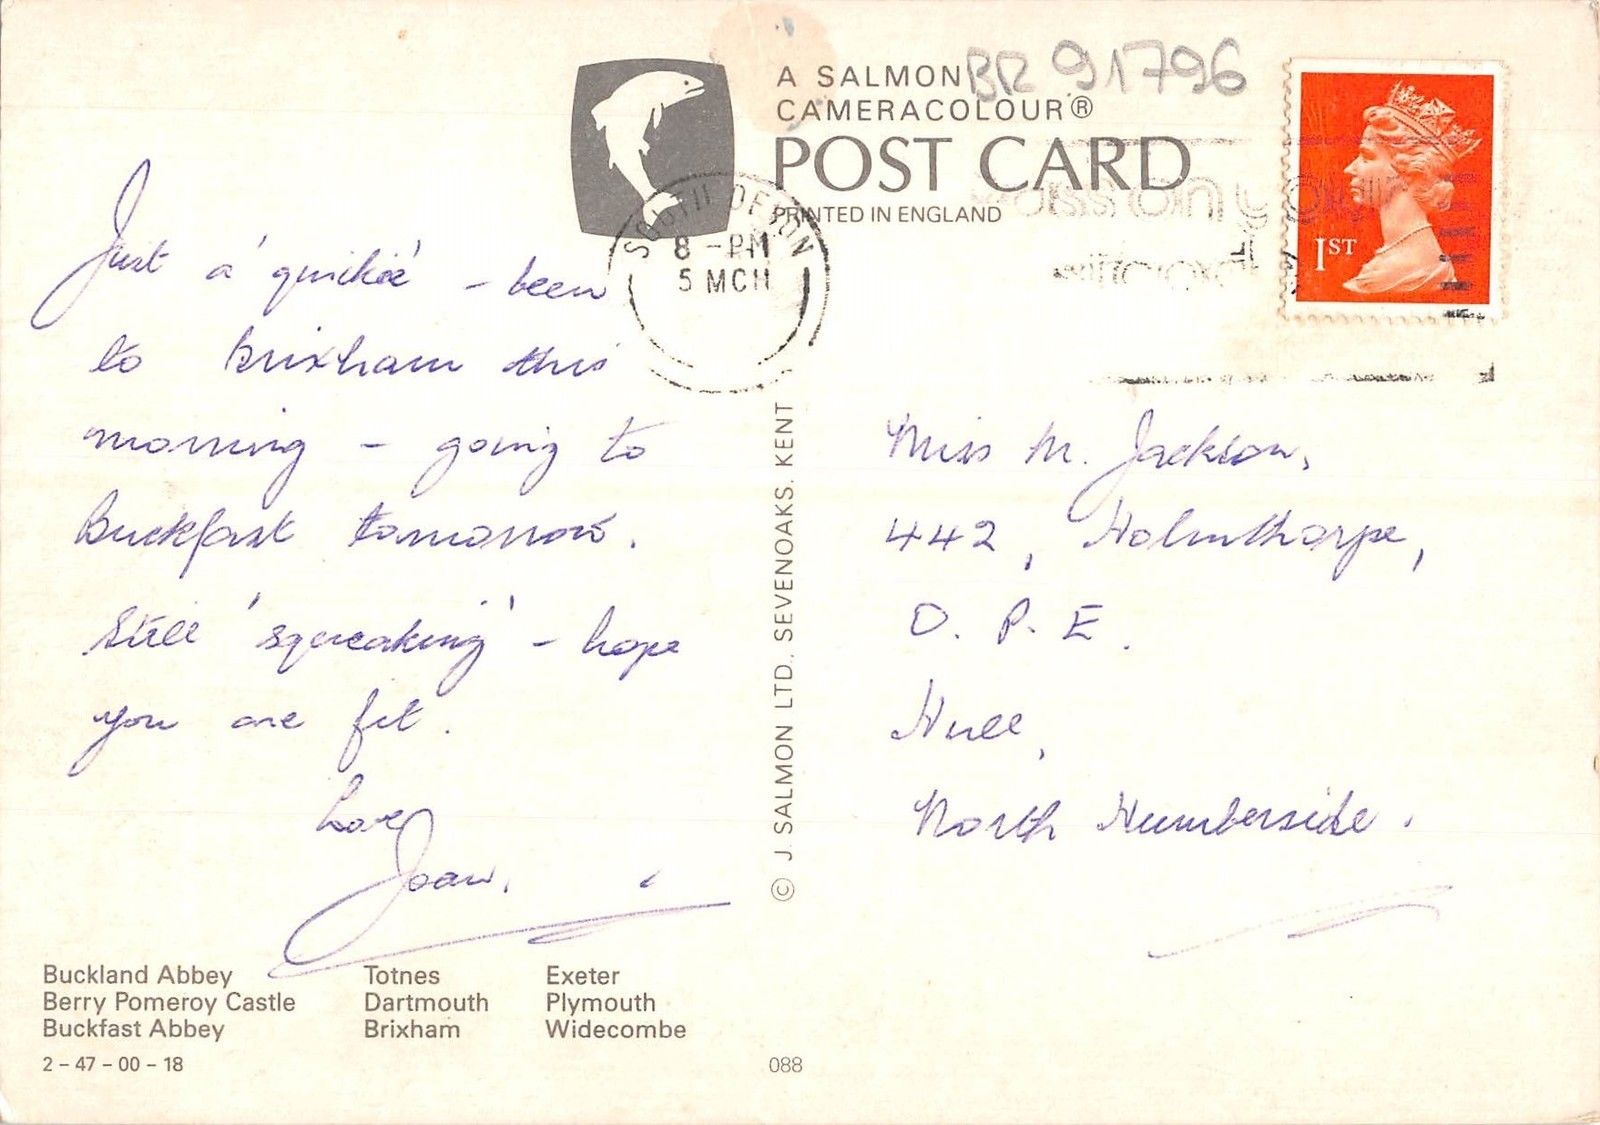 A SALMON
CAMERACOLOUR®
POST CARD
PRINTED IN ENGLAND
BR 91796
SOUTH DEVON
8 - PM
5 MCH
1ST
Just a 'quickie' - been
to Brixham this
morning - going to
Buckfast tomorrow.
Still 'squeaking' - hope
you are fit.
Love
Joan.
© J. SALMON LTD. SEVENOAKS. KENT
Miss M. Jackson,
442, Holmthorpe,
O. P. E.
Hull,
North Humberside.
Buckland Abbey Totnes Exeter
Berry Pomeroy Castle Dartmouth Plymouth
Buckfast Abbey Brixham Widecombe
2 – 47 – 00 – 18 088